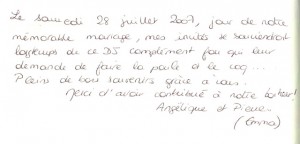 Le samedi 28 juillet 2007, jour de notre
mémorable mariage, mes invités se souviendront
longtemps de ce DJ complément fou qui leur
demande de faire la poule et le coq...
Pleins de bons souvenirs grâce à vous.
Merci d'avoir contribué à notre bonheur!
Angélique et Pierre
(Emma)